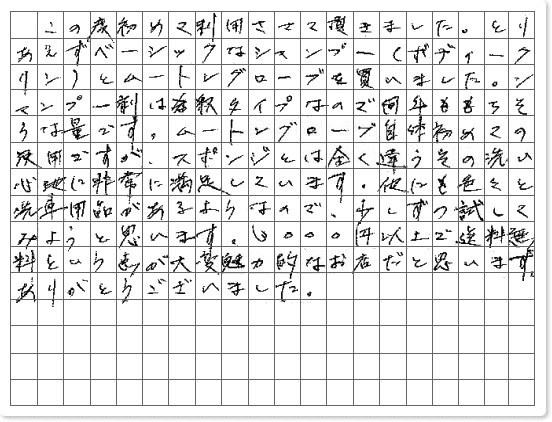 この度初めて利用させて頂きました。とり
あえずベーシックなシャンプー(ボディーク
リン)とムートングローブを買いました。シ
ャンプー剤は希釈タイプなので何年ももちそ
うな量です。ムートングローブ自体初めての
使用ですが、スポンジとは全く違うその洗い
心地に非常に満足しています。他にも色々と
洗車用品があるようなので、少しずつ試して
みようと思います。5000円以上で送料無
料という点が大変魅力的なお店だと思います。
ありがとうございました。